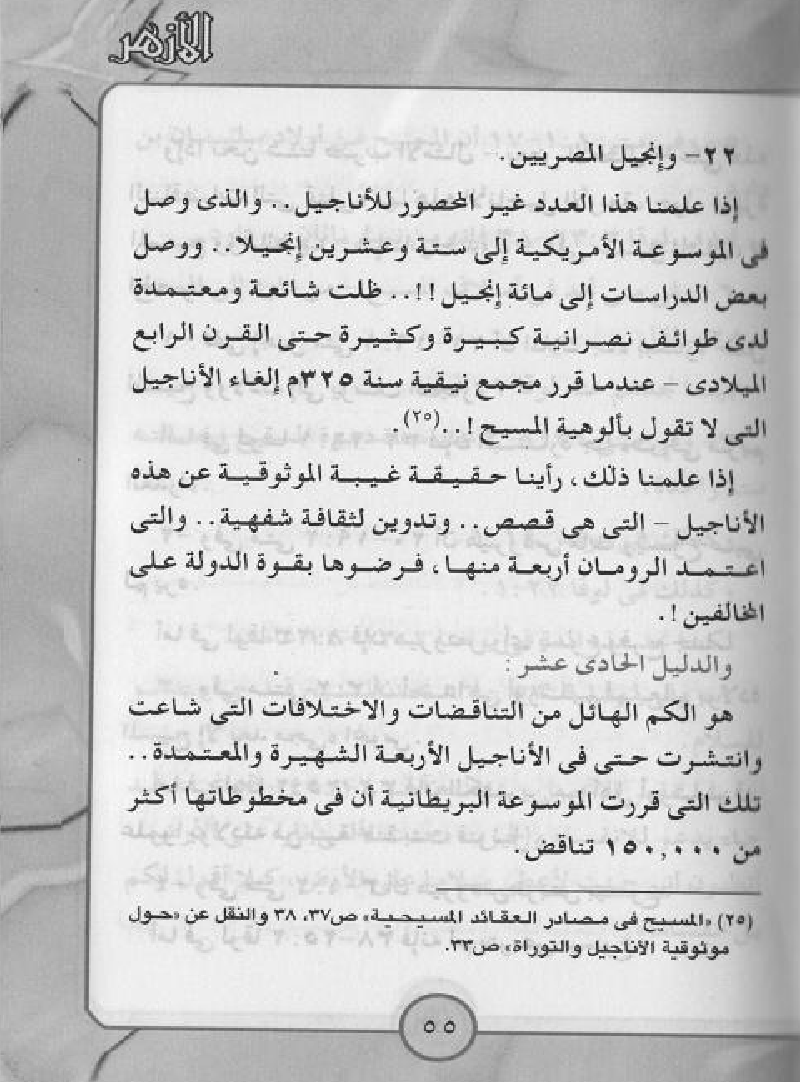 الأزهر
٢٢- وإنجيل المصريين.
إذا علمنا هذا العدد غير المحصور للأناجيل.. والذى وصل
فى الموسوعة الأمريكية إلى ستة وعشرين إنجيلا.. ووصل
بعض الدراسات إلى مائة إنجيل !!.. ظلت شائعة ومعتمدة
لدى طوائف نصرانية كبيرة وكثيرة حتى القرن الرابع
الميلادى - عندما قرر مجمع نيقية سنة ٣٢٥م إلغاء الأناجيل
التى لا تقول بألوهية المسيح !..(٢٥).
إذا علمنا ذلك، رأينا حقيقة غيبة الموثوقية عن هذه
الأناجيل - التى هى قصص.. وتدوين لثقافة شفهية.. والتى
اعتمد الرومان أربعة منها، فرضوها بقوة الدولة على
المخالفين !.
والدليل الحادى عشر :
هو الكم الهائل من التناقضات والاختلافات التى شاعت
وانتشرت حتى فى الأناجيل الأربعة الشهيرة والمعتمدة..
تلك التى قررت الموسوعة البريطانية أن فى مخطوطاتها أكثر
من ١٥٠,٠٠٠ تناقض.
(٢٥) «المسيح فى مصادر العقائد المسيحية» ص٣٧، ٣٨ والنقل عن «حول
موثوقية الأناجيل والتوراة» ص٣٣.
٥٥